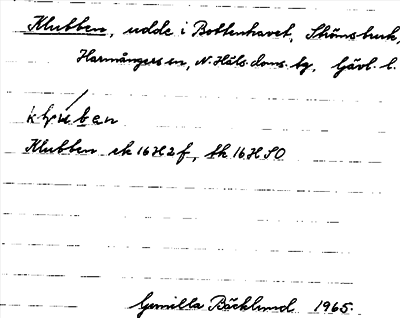 Klubben, udde i Bottenhavet, Skönsbruk,
Harmångers sn, N. Häls. doms. tg, Gävl. l.
klúben
Klubben ek 16H2f, sk 16H SO
Gunilla Bäcklund 1965.